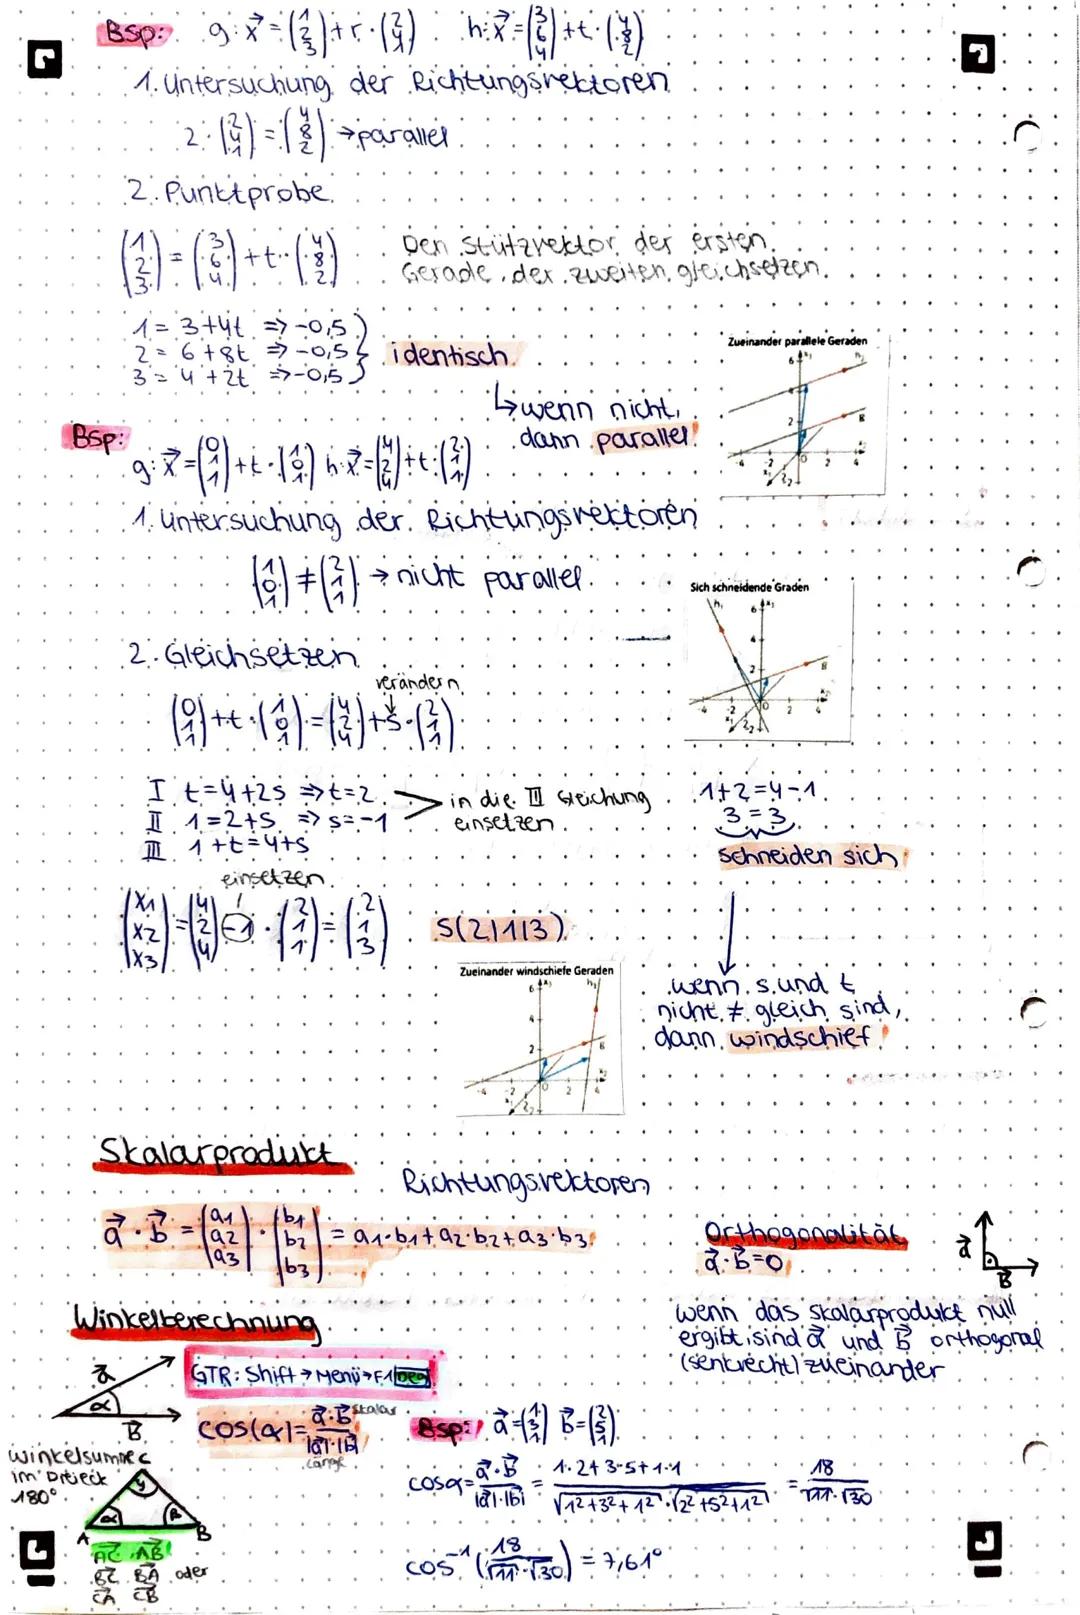 Bsp: g: x⃗ = (1 2 3) + r · (2 4 1) h: x⃗ = (3 6 4) + t · (4 8 2)
1. Untersuchung der Richtungsvektoren
2 · (2 4 1) = (4 8 2) → parallel
2. Punktprobe
(1 2 3) = (3 6 4) + t · (4 8 2)
Den Stützvektor der ersten
Gerade der zweiten gleichsetzen.
1 = 3 + 4t => -0,5
2 = 6 + 8t => -0,5
3 = 4 + 2t => -0,5
identisch
↳ wenn nicht,
dann parallel!
Zueinander parallele Geraden
Bsp:
g: x⃗ = (0 1 1) + t · (1 0 1) h: x⃗ = (4 2 4) + t · (2 1 1)
1. Untersuchung der Richtungsvektoren
(1 0 1) ≠ (2 1 1) → nicht parallel
Sich schneidende Graden
2. Gleichsetzen
verändern
(0 1 1) + t · (1 0 1) = (4 2 4) + s · (2 1 1)
I t = 4 + 2s => t = 2
II 1 = 2 + s => s = -1
III 1 + t = 4 + s
in die III Gleichung
einsetzen
1 + 2 = 4 - 1
3 = 3
schneiden sich
einsetzen
(x1 x2 x3) = (4 2 4) -1 · (2 1 1) = (2 1 3)
S(2|1|3)
wenn s und t
nicht ≠ gleich sind,
dann windschief!
Zueinander windschiefe Geraden
Skalarprodukt
Richtungsvektoren
a⃗ · b⃗ = (a1 a2 a3) · (b1 b2 b3) = a1·b1 + a2·b2 + a3·b3
Orthogonalität
a⃗ · b⃗ = 0
a⃗
b⃗
wenn das Skalarprodukt null
ergibt, sind a⃗ und b⃗ orthogonal
(senkrecht) zueinander
Winkelberechnung
a⃗
α
b⃗
GTR: Shift → Menü → F1 Deg
cos(α) = a⃗·b⃗ / |a⃗|·|b⃗|
Skalar
Länge
Bsp: a⃗ = (1 3 1) b⃗ = (2 5 1)
cosα = a⃗·b⃗ / |a⃗|·|b⃗| = 1·2 + 3·5 + 1·1 / √1²+3²+1² · √2²+5²+1² = 18 / √11 · √30
cos⁻¹ (18 / √11 · √30) = 7,61°
Winkelsumme
im Dreieck
180°
C
γ
α
β
A
B
AC AB
BC BA oder
CA CB